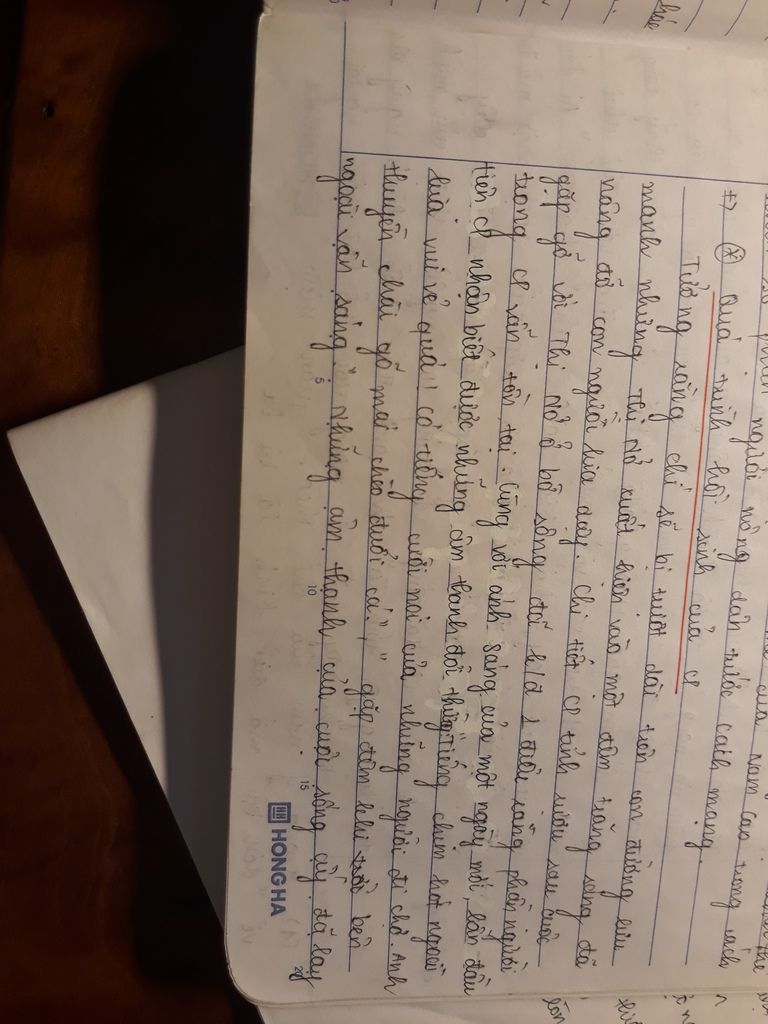 người nông dân trước cách mạng.
+> * Quá trình hồi sinh của CP
Tưởng rằng chí sẽ bị trượt dài trên con đường lưu
manh nhưng Thị Nở xuất hiện vào một đêm trăng sáng đã
nâng đỡ con người kia dậy. Chi tiết CP tỉnh rượu sau cuộc
gặp gỡ với Thị Nở ở bờ sông đã k/đ 1 điều rằng phần người
trong CP vẫn tồn tại. Cùng với ánh sáng của một ngày mới, lần đầu
tiên CP nhận biết được những âm thanh đời thường "Tiếng chim hót ngoài
kia vui vẻ quá! Có tiếng cười nói của những người đi chợ. Anh
thuyền chài gõ mái chèo đuổi cá.", " gặp đêm khi trời bên
ngoài vẫn sáng." Những âm thanh của cuộc sống ấy đã lay
5 10 15 20
HONG HA